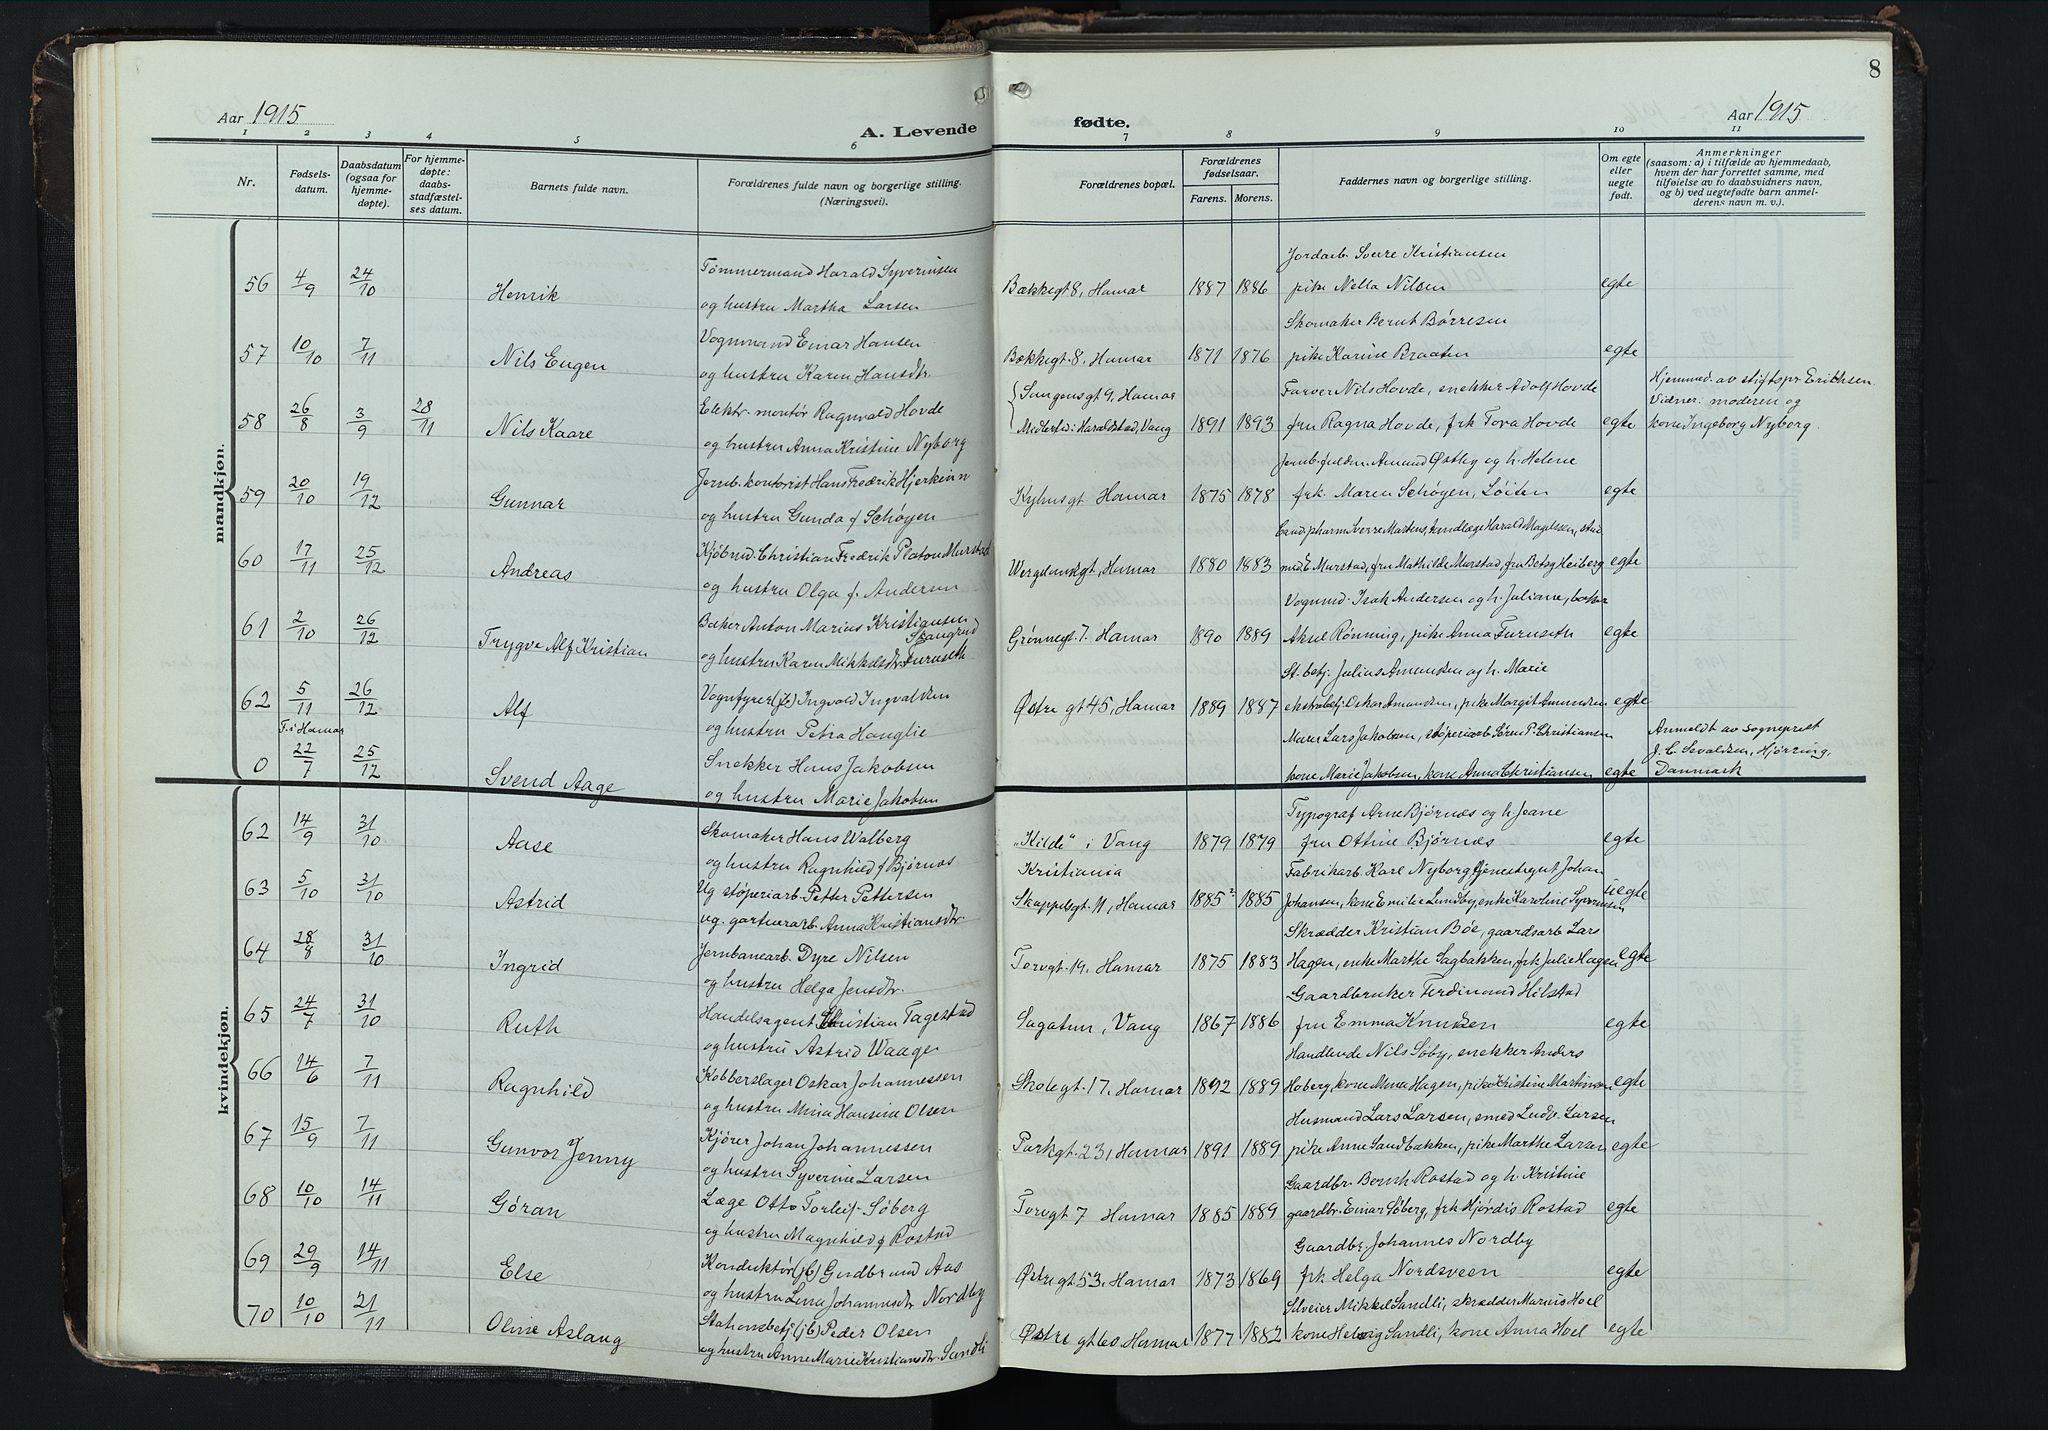 8
Aar 1915
A. Levende fødte.
Aar 1915
1 2 3 4 5 6 7 8 9 10 11
Nr.
Fødsels-
datum.
Daabsdatum
(ogsaa for
hjemme-
døpte).
For hjemme-
døpte:
daabs-
stadfæstel-
ses datum.
Barnets fulde navn.
Forældrenes fulde navn og borgerlige stilling.
(Næringsvei).
Forældrenes bopæl.
Forældrenes
fødselsaar.
Farens. Morens.
Faddernes navn og borgerlige stilling.
Om egte
eller
uegte
født.
Anmerkninger
(saasom: a) i tilfælde av hjemmedaab,
hvem der har forrettet samme, med
tilføielse av to daabsvidners navn,
og b) ved uegtefødte barn anmel-
derens navn m. v.).
mandkjøn.
56 4/9 24/10 Henrik
Tømmermand Harald Syverinsen
og hustru Martha Larsen
Bækkegt 8, Hamar 1887 1886
Jordarb. Sverre Kristiansen
pike Nella Nilsen
egte
57 10/10 7/11 Nils Eugen
Vognmand Einar Hansen
og hustru Karen Hansdtr
Bækkegt. 8, Hamar 1871 1876
Skomaker Bernt Børresen
pike Karine Braaten
egte
58 26/8 3/9 28/11 Nils Kaare
Elektr. montør Ragnvald Hovde
og hustru Anna Kristine Nyborg
Sangensgt 9, Hamar
Midlertid: Haraldstad, Vang 1891 1893
Farver Nils Hovde, snekker Adolf Hovde
fru Ragna Hovde, frk Tora Hovde
egte
Hjemmed. av stiftspr Erichsen.
Vidner: moderen og
kone Ingeborg Nyborg.
59 20/10 19/12 Gunnar
Jernb. kontorist Hans Fredrik Hjerkinn
og hustru Gunda f. Schøyen
Kyhnsgt Hamar 1875 1878
Jernb. fuldm. Amund Østby og h. Helene
frk. Maren Schøyen, Løiten
egte
60 17/11 25/12 Andreas
Kjøbmd. Christian Fredrik Platou Murstad
og hustru Olga f. Andersen
Wergelandsgt, Hamar 1880 1883
Cand. pharm Sverre Martens, tandlæge Harald Magelssen, stud
med E Murstad, fru Mathilde Murstad, fru Betsy Heiberg
egte
61 2/10 26/12 Trygve Alf Kristian
Baker Anton Marius Kristiansen
Skaugrud
og hustru Karen Mikkelsdtr. Furuseth
Grønnegt. 7. Hamar 1890 1889
Vognmd. Isak Andersen og h. Juliane, baker
Aksel Rønning, pike Anna Furuseth
egte
62 5/11 26/12 Alf
Vognfyrer (jb) Ingvald Ingvaldsen
og hustru Petra Hauglie
Østre gt 45, Hamar 1889 1887
St. betj. Julius Amundsen og h. Marie
ekstrabetj Oskar Amundsen, pike Margit Amundsen
egte
F. i Hamar
0 22/7 25/12 Svend Aage
Snekker Hans Jakobsen
og hustru Marie Jakobsen
Murer Lars Jakobsen, støperiarb Søren P. Christiansen
kone Marie Jakobsen, kone Anna Christiansen
egte
Anmeldt av sogneprest
J. C. Sevaldsen, Hjørring,
Danmark
kvindekjøn.
62 14/9 31/10 Aase
Skomaker Hans Walberg
og hustru Ragnhild f Bjørnæs
„Kilde" i Vang 1879 1879
Typograf Arne Bjørnæs og h. Jeane
fru Ottine Bjørnæs
egte
63 5/10 31/10 Astrid
Ug støperiarb. Petter Pettersen
ug. gartnerarb. Anna Kristiansdtr.
Kristiania
Skappelsgt. 11, Hamar 1885? 1885
Fabrikarb. Karl Nyborg tjenestegut Johan
Johansen, kone Emilie Lundby, enke Karoline Syverinsen
uegte
64 28/8 31/10 Ingrid
Jernbanearb. Dyre Nilsen
og hustru Helga Jensdtr.
Torvgt. 19. Hamar 1875 1883
Skrædder Kristian Bøe, gaardsarb Lars
Hagen, enke Marthe Sagbakken, frk Julie Hagen
egte
65 24/7 31/10 Ruth
Handelsagent Christian Tagestad
og hustru Astrid Waage
Sagatun, Vang 1867 1886
Gaardbruker Ferdinand Hilstad
fru Emma Knudsen
egte
66 14/6 7/11 Ragnhild
Kobberslager Oskar Johannessen
og hustru Mina Hansine Olsen
Skolegt. 17, Hamar 1892 1889
Handlende Nils Søby, snekker Anders
Hoberg, kone Mina Hagen, pike Kristine Martinsen
egte
67 15/9 7/11 Gunvor Jenny
Kjører Johan Johannessen
og hustru Syverine Larsen
Parkgt. 23, Hamar 1891 1889
Husmand Lars Larsen, smed Ludv. Larsen
pike Anne Sandbakken, pike Marthe Larsen
egte
68 10/10 14/11 Gøran
Læge Otto Torleif Søberg
og hustru Magnhild f Rostad
Torvgt 7 Hamar 1885 1889
Gaardbr. Bernh Rostad og h. Kristine
gaardbr. Einar Søberg, frk Hjørdis Rostad
egte
69 29/9 14/11 Else
Konduktør (jb) Gudbrand Aas
og hustru Lina Johannesdtr Nordby
Østregt 53, Hamar 1873 1869
Gaardbr. Johannes Nordby
frk Helga Nordsveen
egte
70 10/10 21/11 Oline Aslaug
Stationsbetj (jb) Peder Olsen
og hustru Anne Marie Kristiansdtr. Sandli
Østre gt 60 Hamar 1877 1882
Sliveier Mikkel Sandli, skrædder Marius Hoel
kone Helvig Sandli, kone Anna Hoel
egte